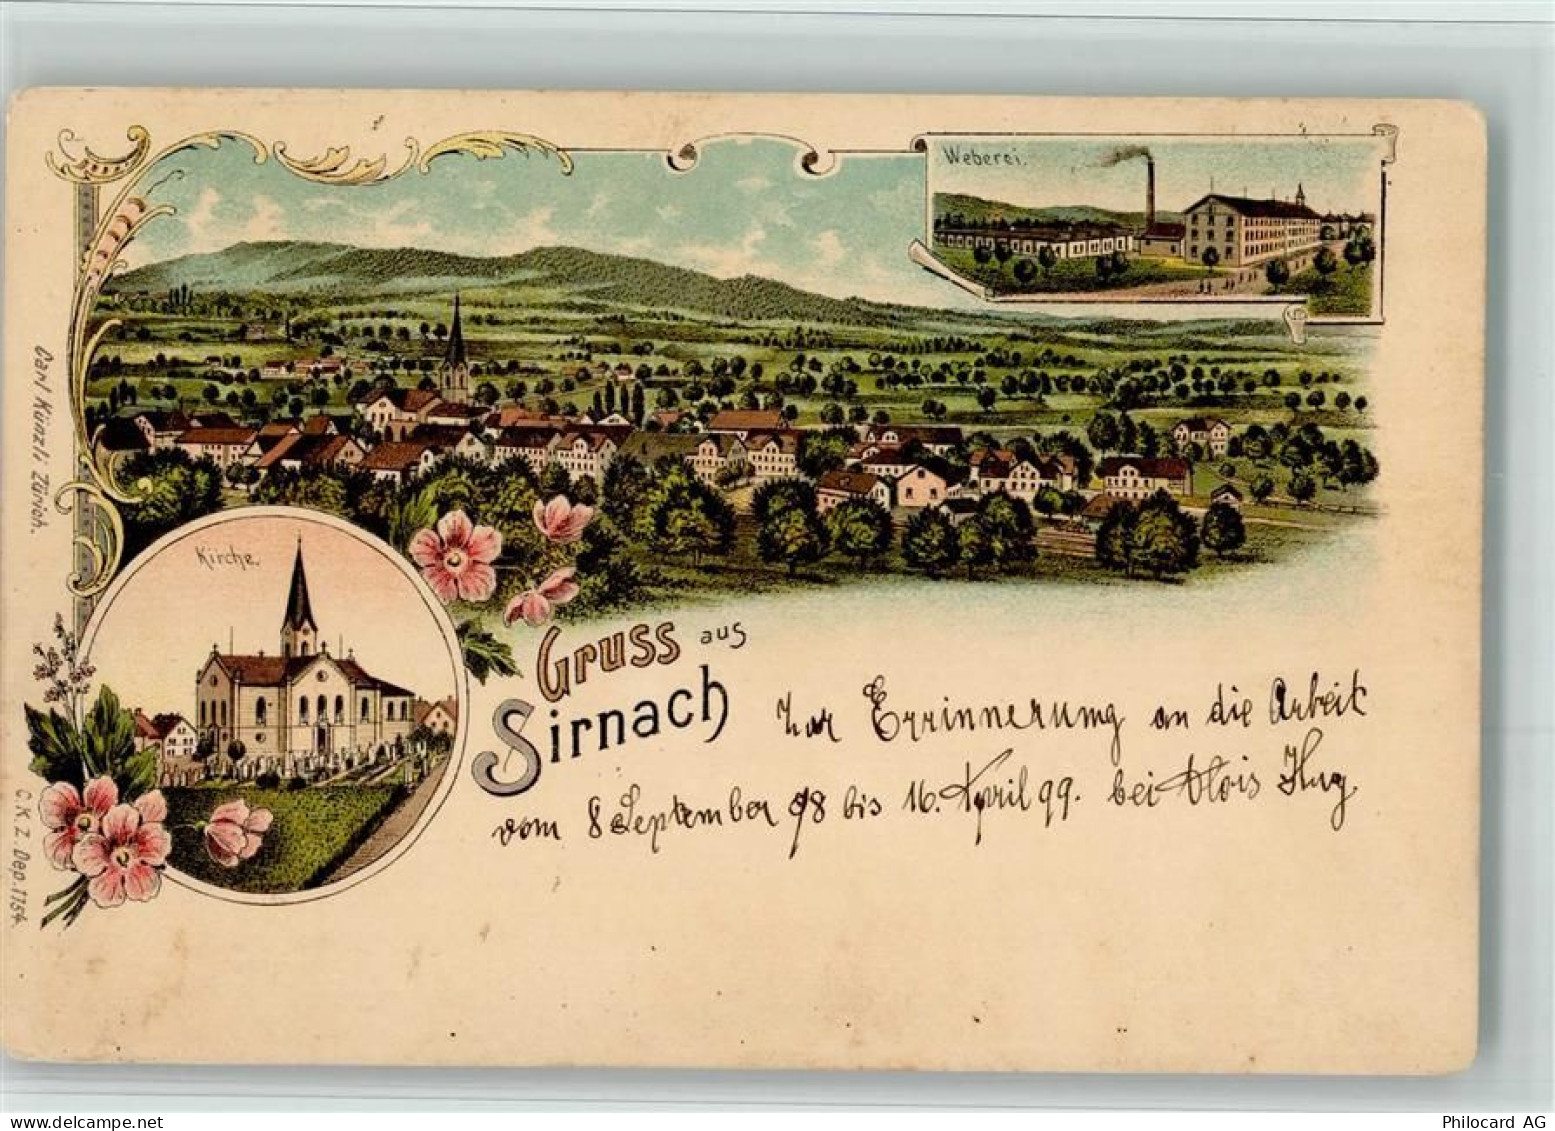 Weberei.
Kirche.
Gruss aus
Sirnach
Zur Errinnerung an die Arbeit
vom 8 September 98 bis 16. April 99. bei Alois Hug
Carl Künzli Zürich.
C.K.Z. Dep. 1154.
www.delcampe.net
Philocard AG